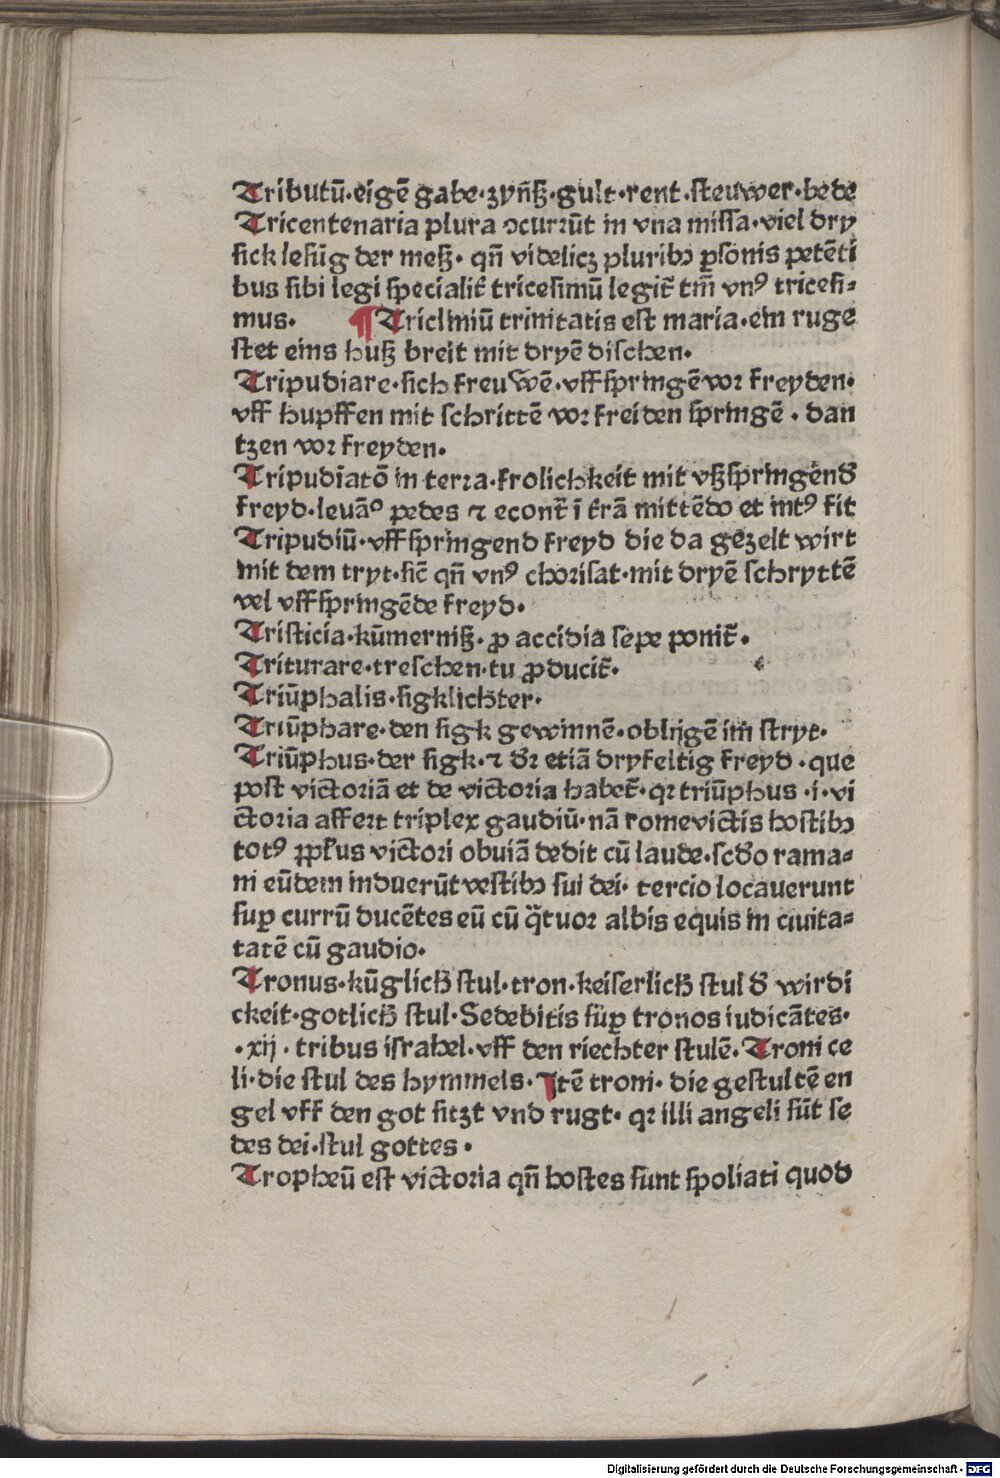 Tributū·eigē gabe·zyn̄ß·gult·rent·steuwer·bede
Tricentenaria plura ↄcurrūt in vna missa·viel dry
sick lesūg der meß· qn̄ videlicꝫ pluribꝰ ꝑsonis petēti
bus sibi legi specialit̄ tricesimū legit̄ tm̄ vnꝰ tricesi⸗
mus· ¶ Tricliniū trinitatis est maria·ein ruge
stet eins huß breit mit dryē dischen·
Tripudiare·sich freuwē·vffspringē vor freyden·
vff hupffen mit schrittē vor freiden springē·dan
tzen vor freyden·
Tripudiatō in terra·frolichkeit mit vßspringēnd̄
freyd·levāᵒ pedes ⁊ econt̄ ī t̄rā mittēdo et int̄ꝰ fit
Tripudiū·vffspringend freyd die da gezelt wirt
mit dem tryt·sic̄ qn̄ vnꝰ chorisat·mit dryē schryttē
vel vffspringēde freyd·
Tristicia·kūmerniß·ꝓ accidia sepe ponit̄·
Triturare·treschen·tu ꝓducit̄·
Triūphalis·sigklichter·
Triūphare·den sigk gewinnē·obligē im stryt·
Triūphus·der sigk·⁊ dr̄ etiā dryfeltig freyd·que
post victoriā et de victoria habet̄·qꝛ triūphus·i·vi
ctoria affert triplex gaudiū·nā rome victis hostibꝰ
totꝰ ꝓpl̄us victori obuiā dedit cū laude·scd̄o rama⸗
ni eūdem induerūt vestibꝰ sui dei·tercio locauerunt
suꝑ currū ducētes eū cū q̄tuor albis equis in ciuita⸗
tatē cū gaudio·
Tronus·kūglich̄ stul·tron·keiserlich̄ stul d̄ wirdi
ckeit·gotlich̄ stul·Sedebitis suꝑ tronos iudicātes·
·xij·tribus israhel·vff den riechter stulē·Troni ce
li·die stul des hymmels·Itē troni·die gestultē en
gel vff den got sitzt vnd rugt·qꝛ illi angeli sūt se
des dei·stul gottes·
Tropheū est victoria qn̄ hostes sunt spoliati quod
Digitalisierung gefördert durch die Deutsche Forschungsgemeinschaft - DFG